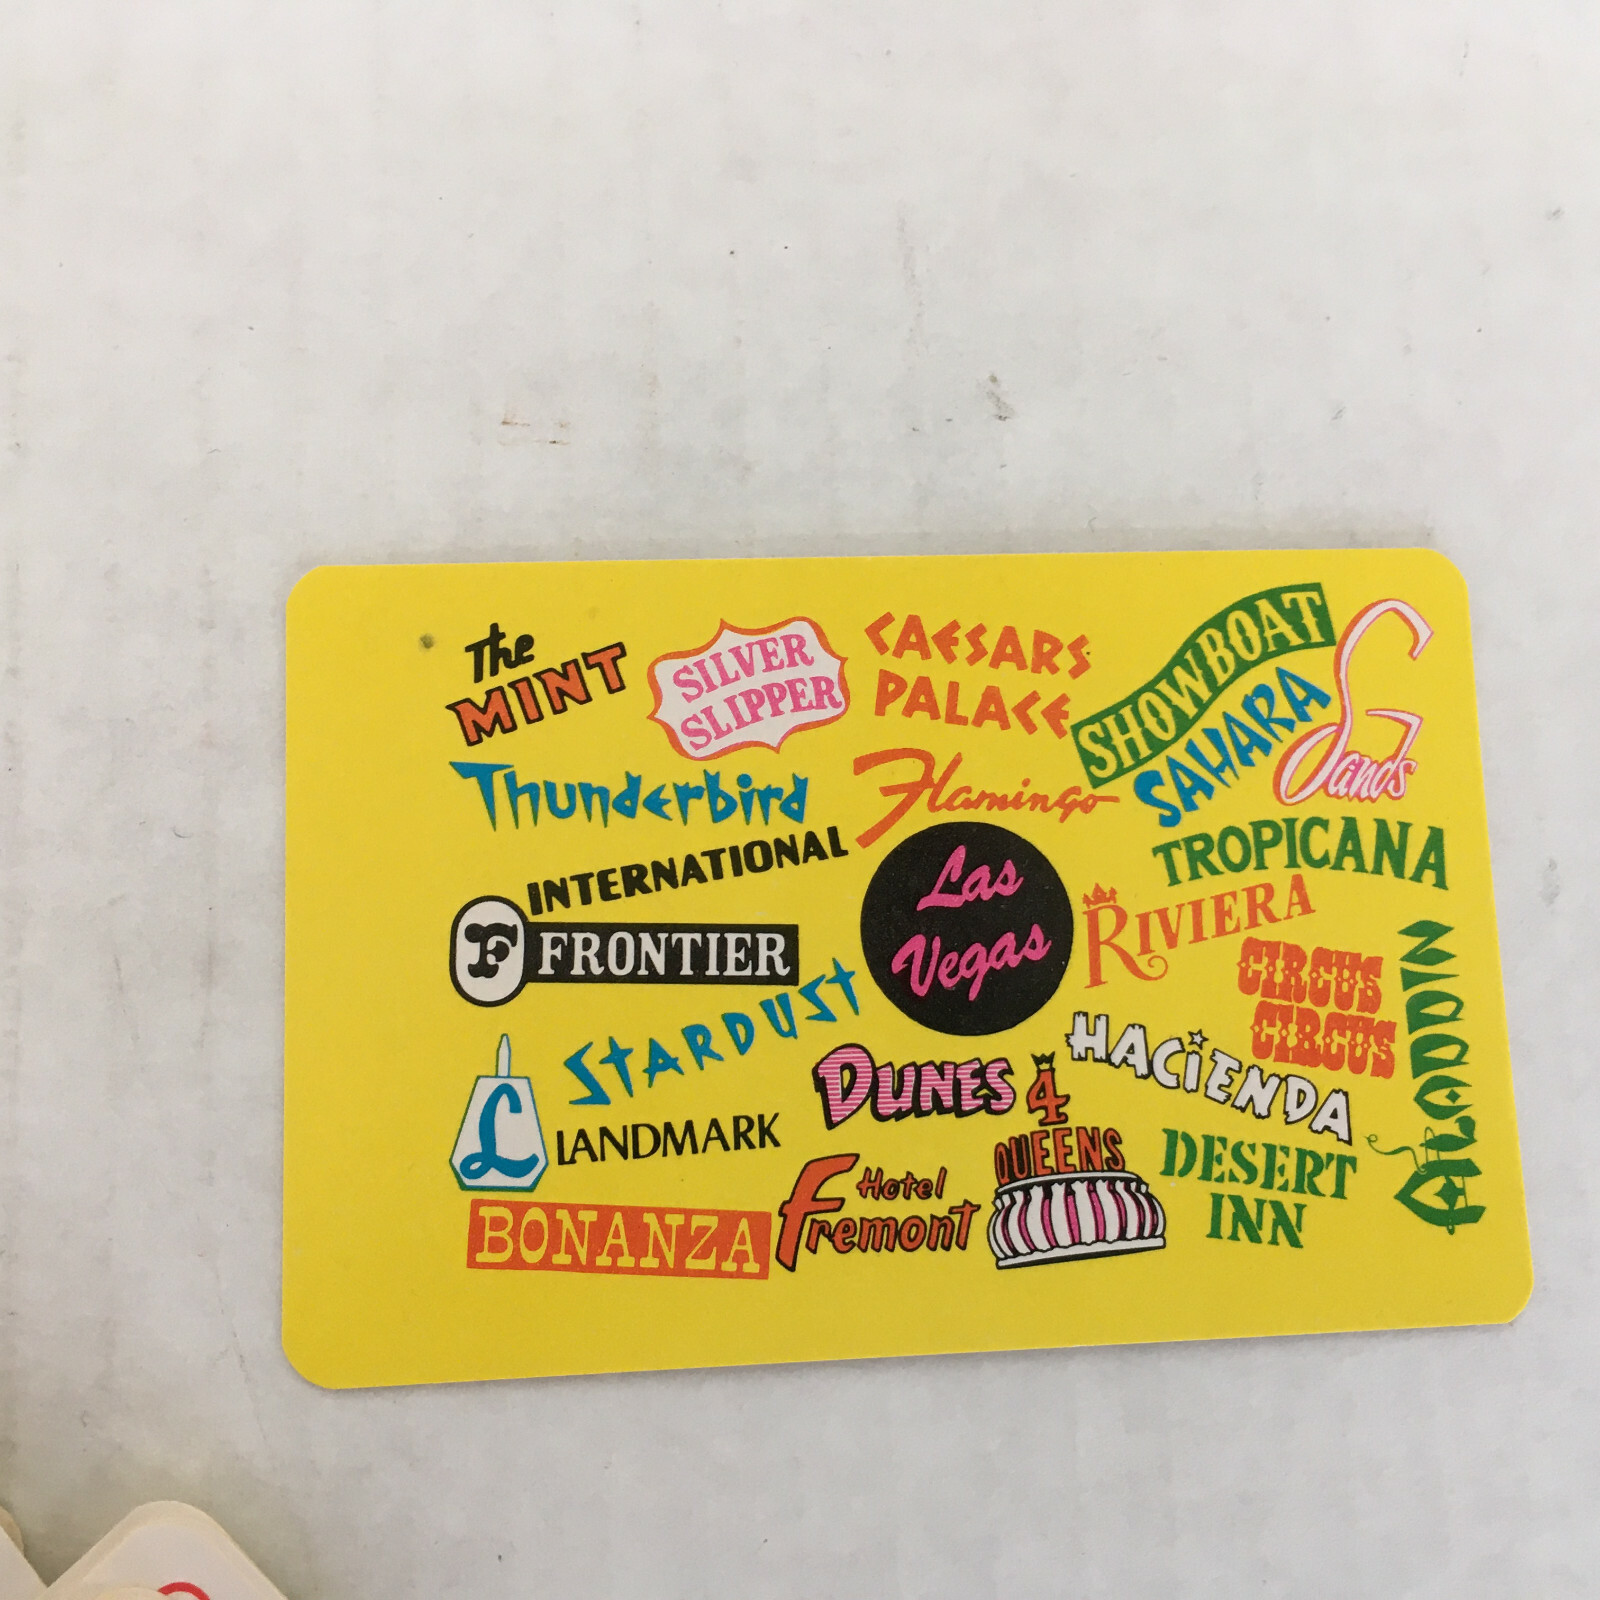 The
MINT
SILVER
SLIPPER
CAESARS
PALACE
SHOWBOAT
SAHARA
Sands
Thunderbird
Flamingo
TROPICANA
INTERNATIONAL
Las
Vegas
RIVIERA
F FRONTIER
CIRCUS
CIRCUS
ALADDIN
STARDUST
HACIENDA
DUNES
4
QUEENS
L LANDMARK
DESERT
INN
Hotel
Fremont
BONANZA